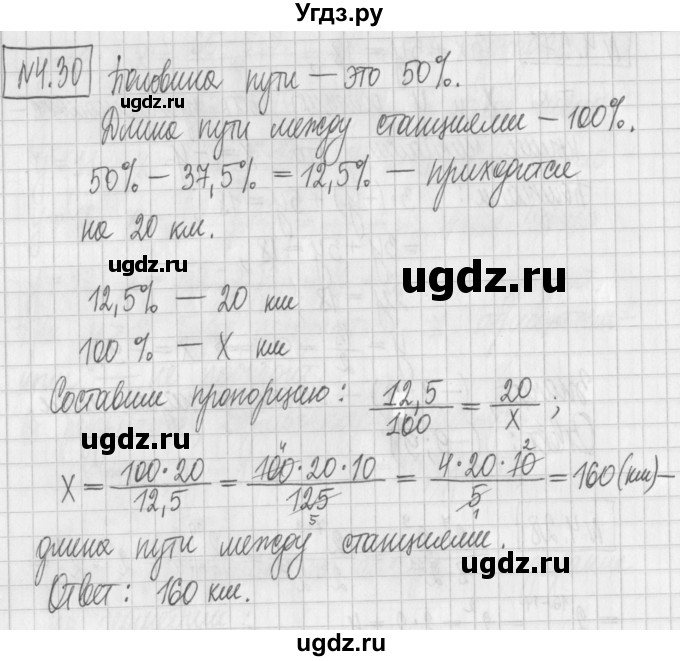 Угдз.ру
№4.30 Половина пути – это 50%.
ugdz.ru
Длина пути между станциями – 100%.
50% – 37,5% = 12,5% – приходятся
на 20 км.
ugdz.ru
ugdz.ru
12,5% – 20 км
100 % – X км
Составим пропорцию: 12,5/100 = 20/X ;
X = 100·20/12,5 = 100·20·10/125 = 4·20·10/5 = 160 (км) –
4 5 2 1
длина пути между станциями.
ugdz.ru
ugdz.ru
Ответ: 160 км.
ugdz.ru